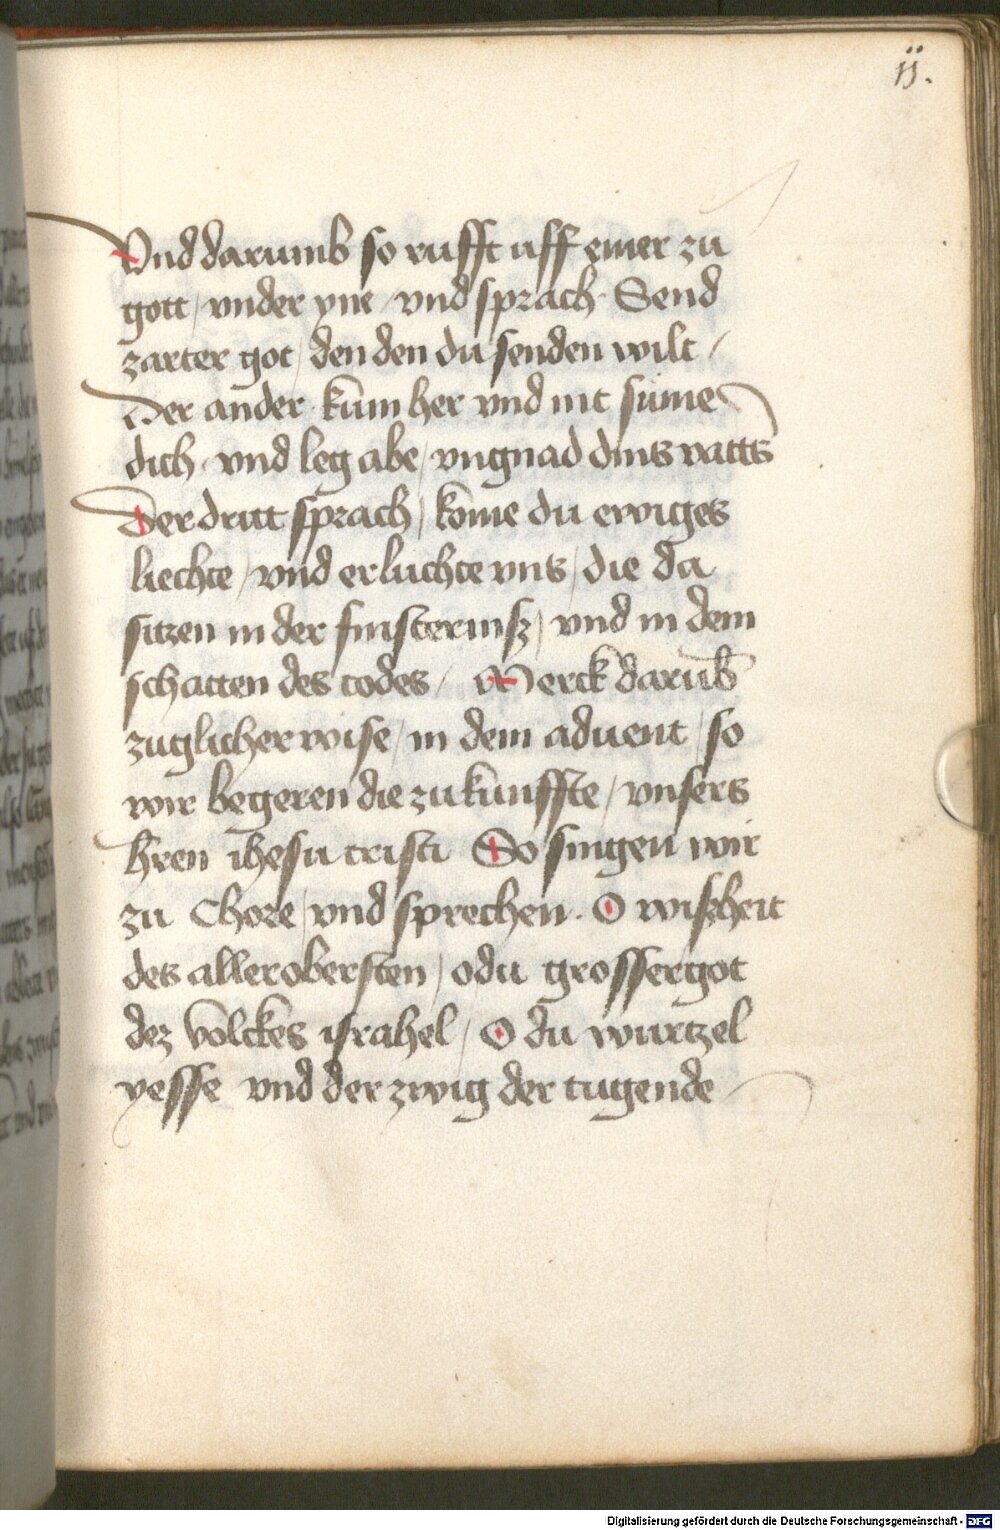 ij.
Vnd darumb so rufft uff einer zu
gott / vnder yne / vnd sprach · Send
zarter got / den den du senden wilt /
Der ander · kum̄ her vnd nit süme
dich · vnd leg abe / vngnad dins vatts
Der dritt sprach / kōme du ewiges
liechte / vnd erluchte vns / die da
sitzen in der finsternisz / vnd in dem
schatten des todes / Merck darub̄
zuglicher wise / in dem aduent / so
wir begeren die zukunffte / vnsers
hren ihesu cristi So singen wir
zu Chore / vnd sprechen · O wiszheit
des allerobersten / o du grosser got
dez volckes israhel / O du wurtzel
yesse vnd der zwig der tugende
Digitalisierung gefördert durch die Deutsche Forschungsgemeinschaft - DFG